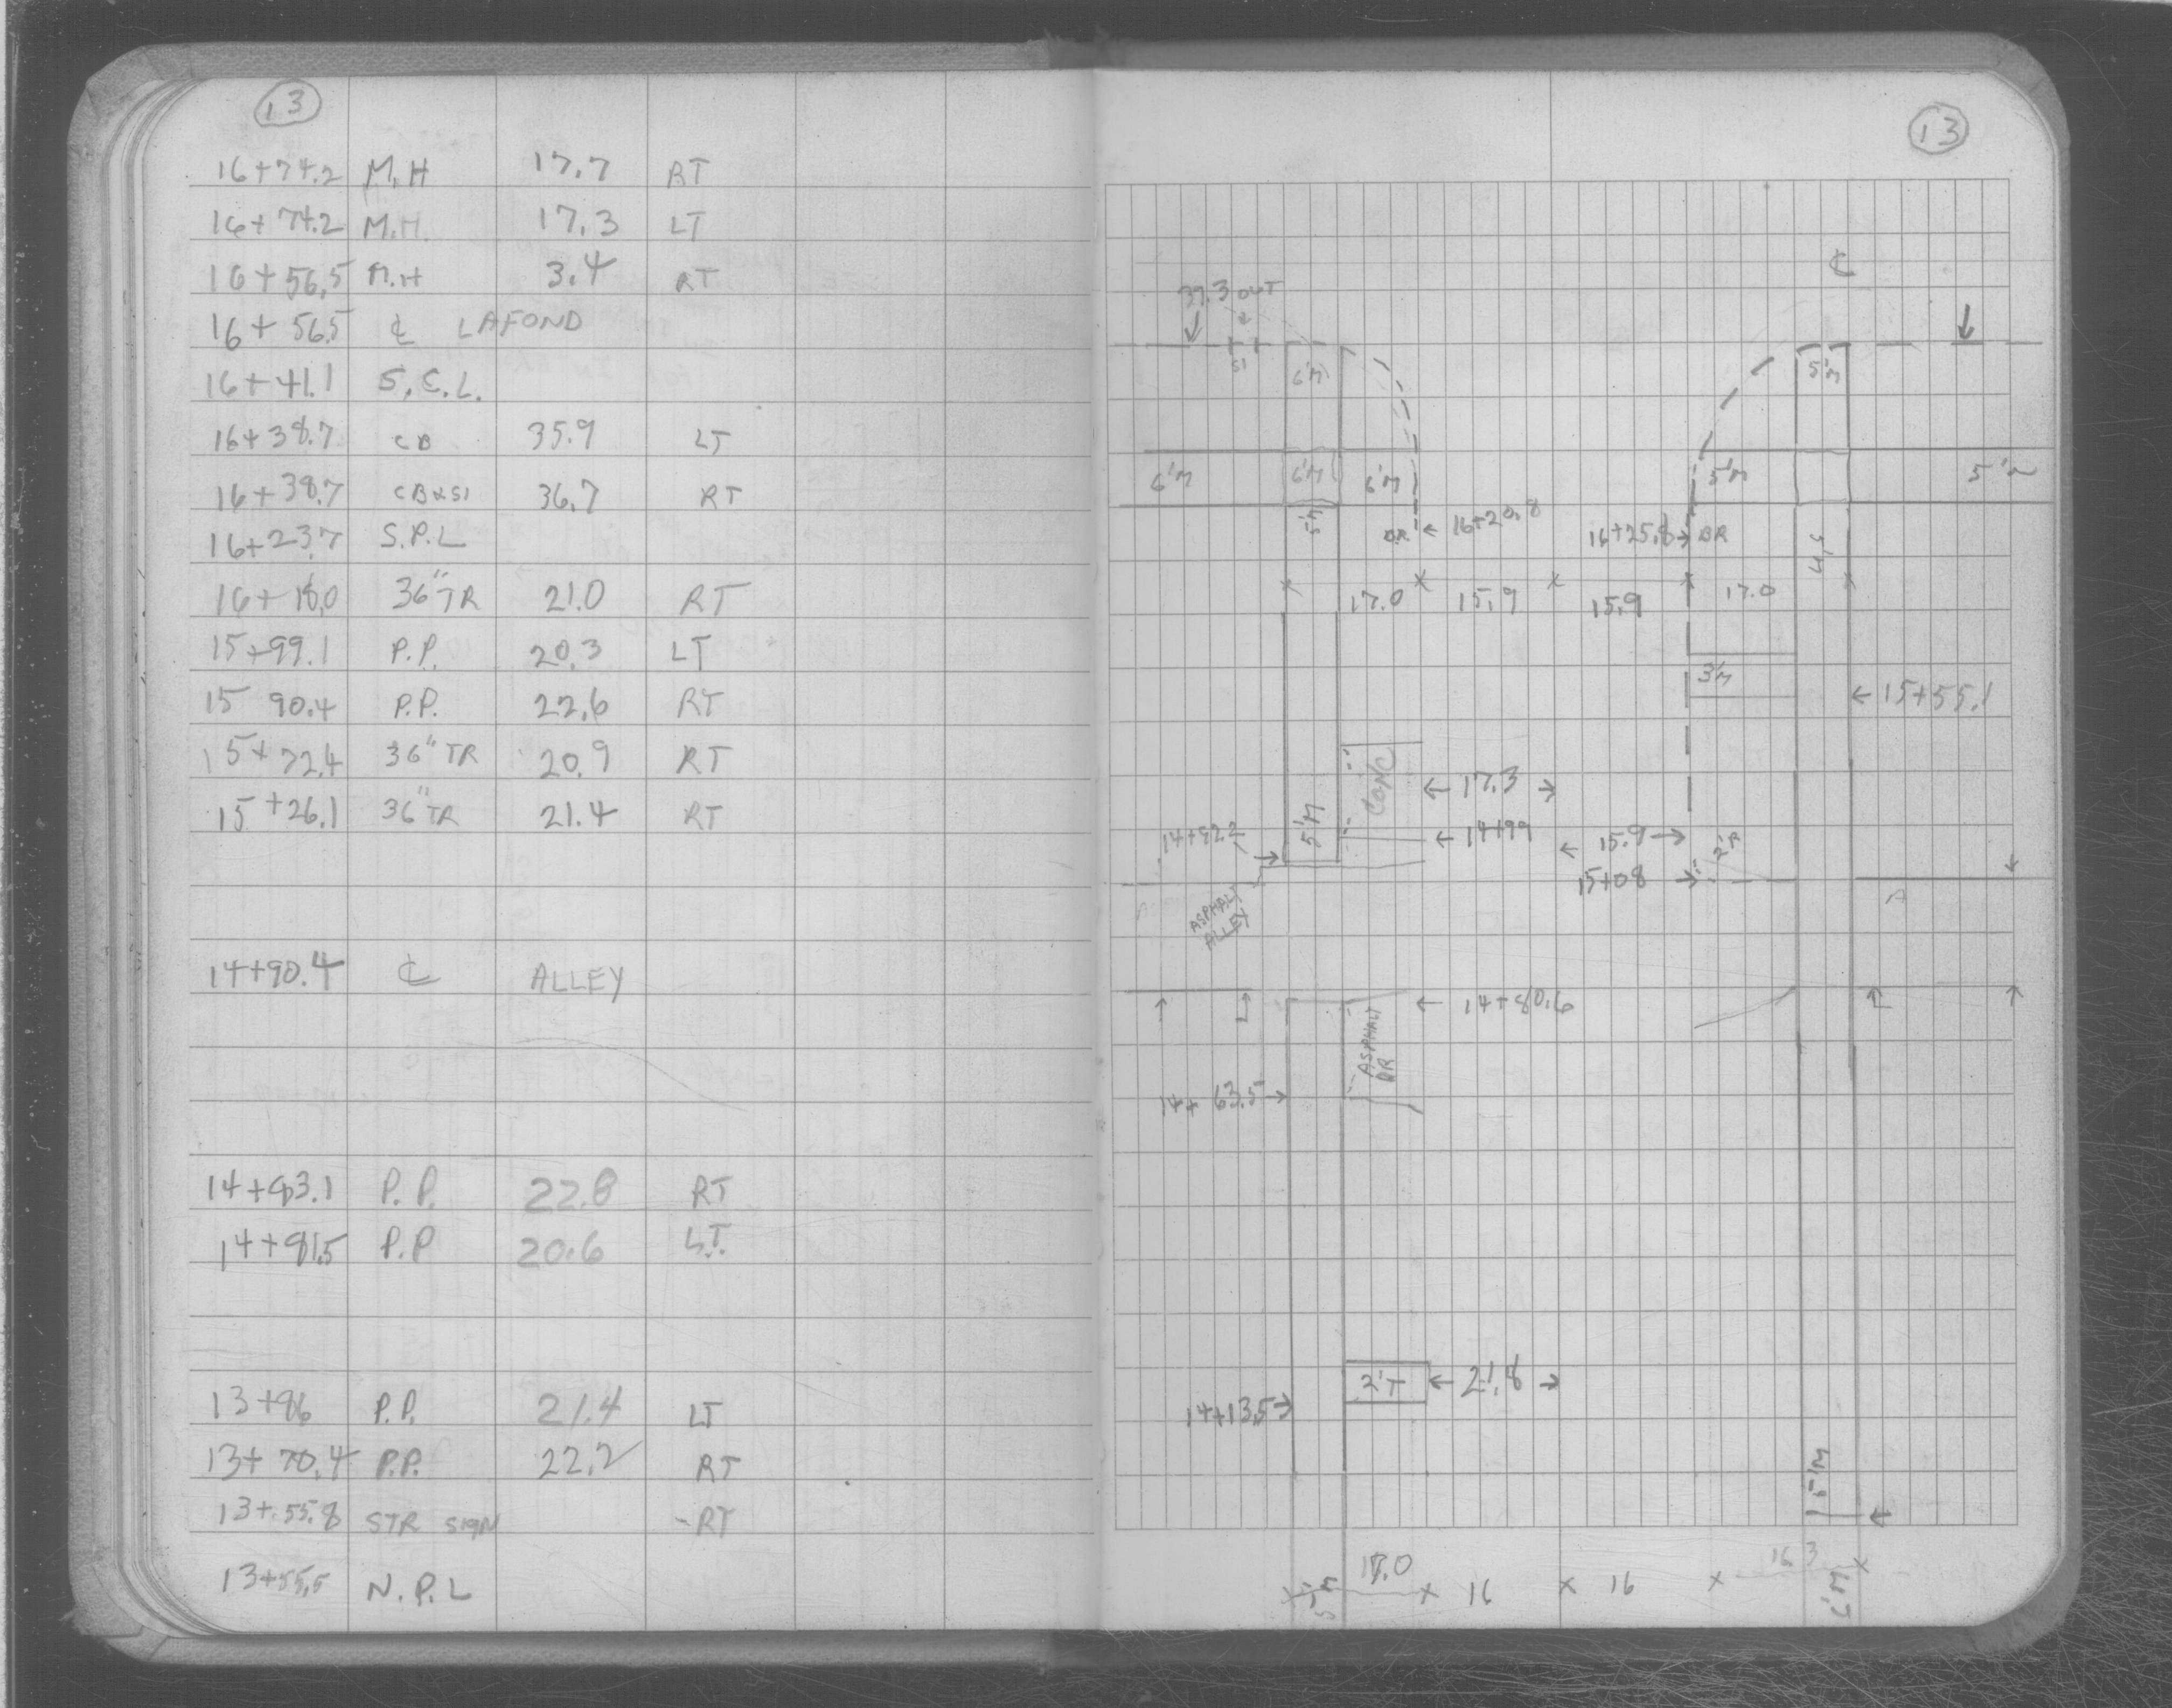 13
16+74.2 M.H 17.7 RT
16+74.2 M.H. 17.3 LT
16+56.5 M.H 3.4 RT
16+56.5 ℄ LAFOND
16+41.1 S.C.L.
16+38.7 CB 35.9 LT
16+38.7 CB&SI 36.7 RT
16+23.7 S.P.L
16+18.0 36"TR 21.0 RT
15+99.1 P.P. 20.3 LT
15 90.4 P.P. 22.6 RT
15+72.4 36"TR 20.9 RT
15+26.1 36"TR 21.4 RT
14+90.4 ℄ ALLEY
P.P. 22.8 RT
P.P 20.6 LT.
P.P. 21.4 LT
13+70.4 P.P. 22.2 RT
13+55.8 STR SIGN -RT
13+55.5 N.P.L
13
℄
39.3 OUT
SI 6'M 5'M
6'M 6'M 6'M 5'M 5'M
5'M BR ← 16+20.8 16+25.8 → BR
17.0 × 15.9 × 15.9 × 17.0 ×
3'M
← 15+55.1
CONC ← 17.3 →
5'M ← 14+99 ← 15.9 →
2'R
15+08 →
A
ASPHALT
ALLEY
← 14+80.6
ASPHALT
DR
14+63.5 →
2'T ← 21.8 →
14+13.5 →
5'M
17.0 × 16 × 16 × 16.3 ×
5'M